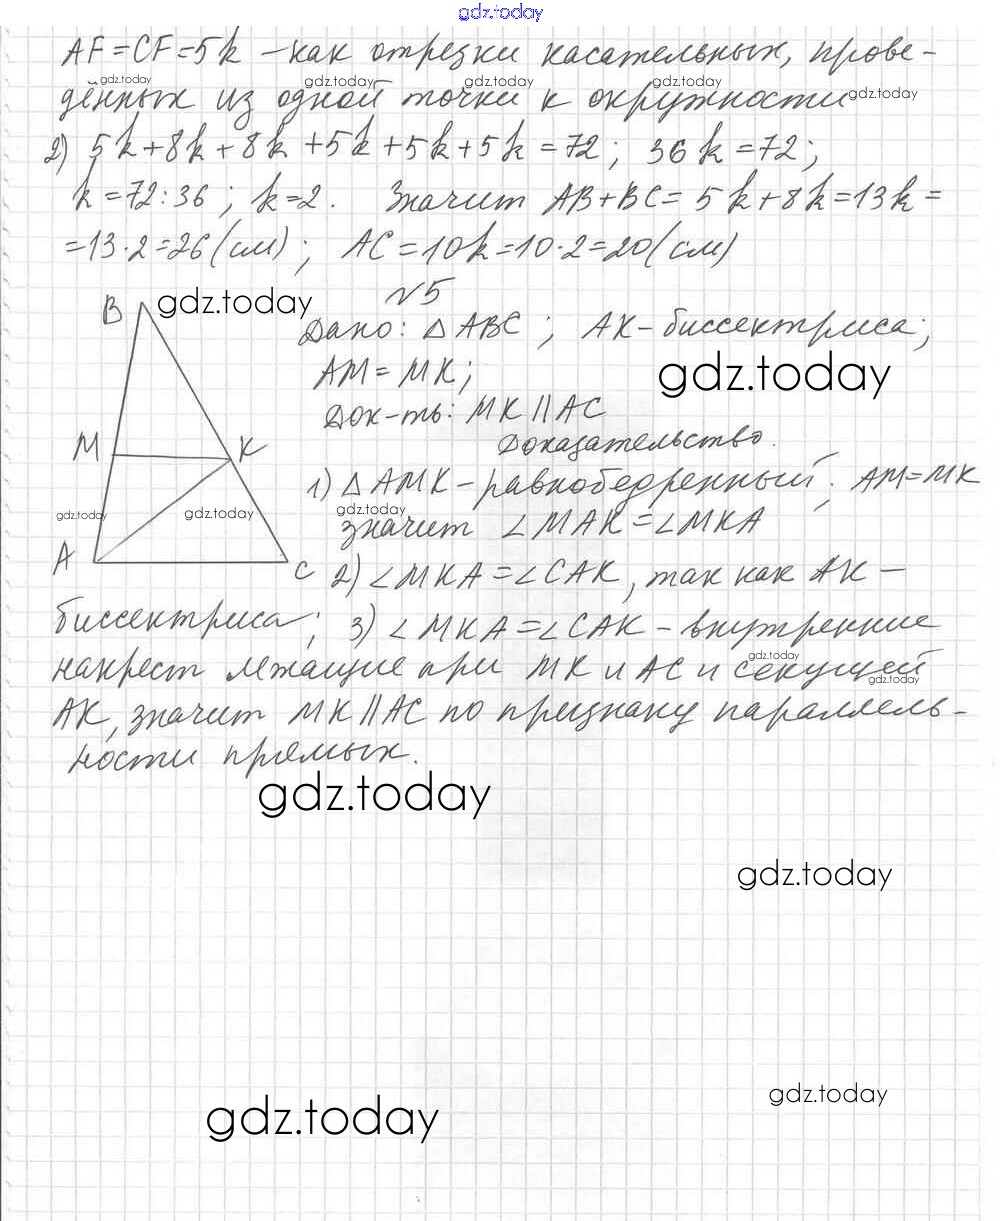 gdz.today
AF = CF = 5k – как отрезки касательных, прове-
gdz.today gdz.today gdz.today gdz.today gdz.today
дённых из одной точки к окружности
2) 5k + 8k + 8k + 5k + 5k + 5k = 72; 36k = 72;
k = 72 : 36; k = 2. Значит AB + BC = 5k + 8k = 13k =
= 13 · 2 = 26 (см); AC = 10k = 10 · 2 = 20 (см)
№5
B gdz.today
Дано: △ ABC; AK – биссектриса;
AM = MK; gdz.today
Док-ть: MK || AC
M K Доказательство.
1) △ AMK – равнобедренный; AM = MK
gdz.today gdz.today gdz.today
значит ∠ MAK = ∠ MKA
A C 2) ∠ MKA = ∠ CAK, так как AK –
биссектриса; 3) ∠ MKA = ∠ CAK – внутренние
накрест лежащие при MK и AC и секущей
gdz.today gdz.today
AK, значит MK || AC по признаку параллель-
ности прямых.
gdz.today
gdz.today
gdz.today
gdz.today